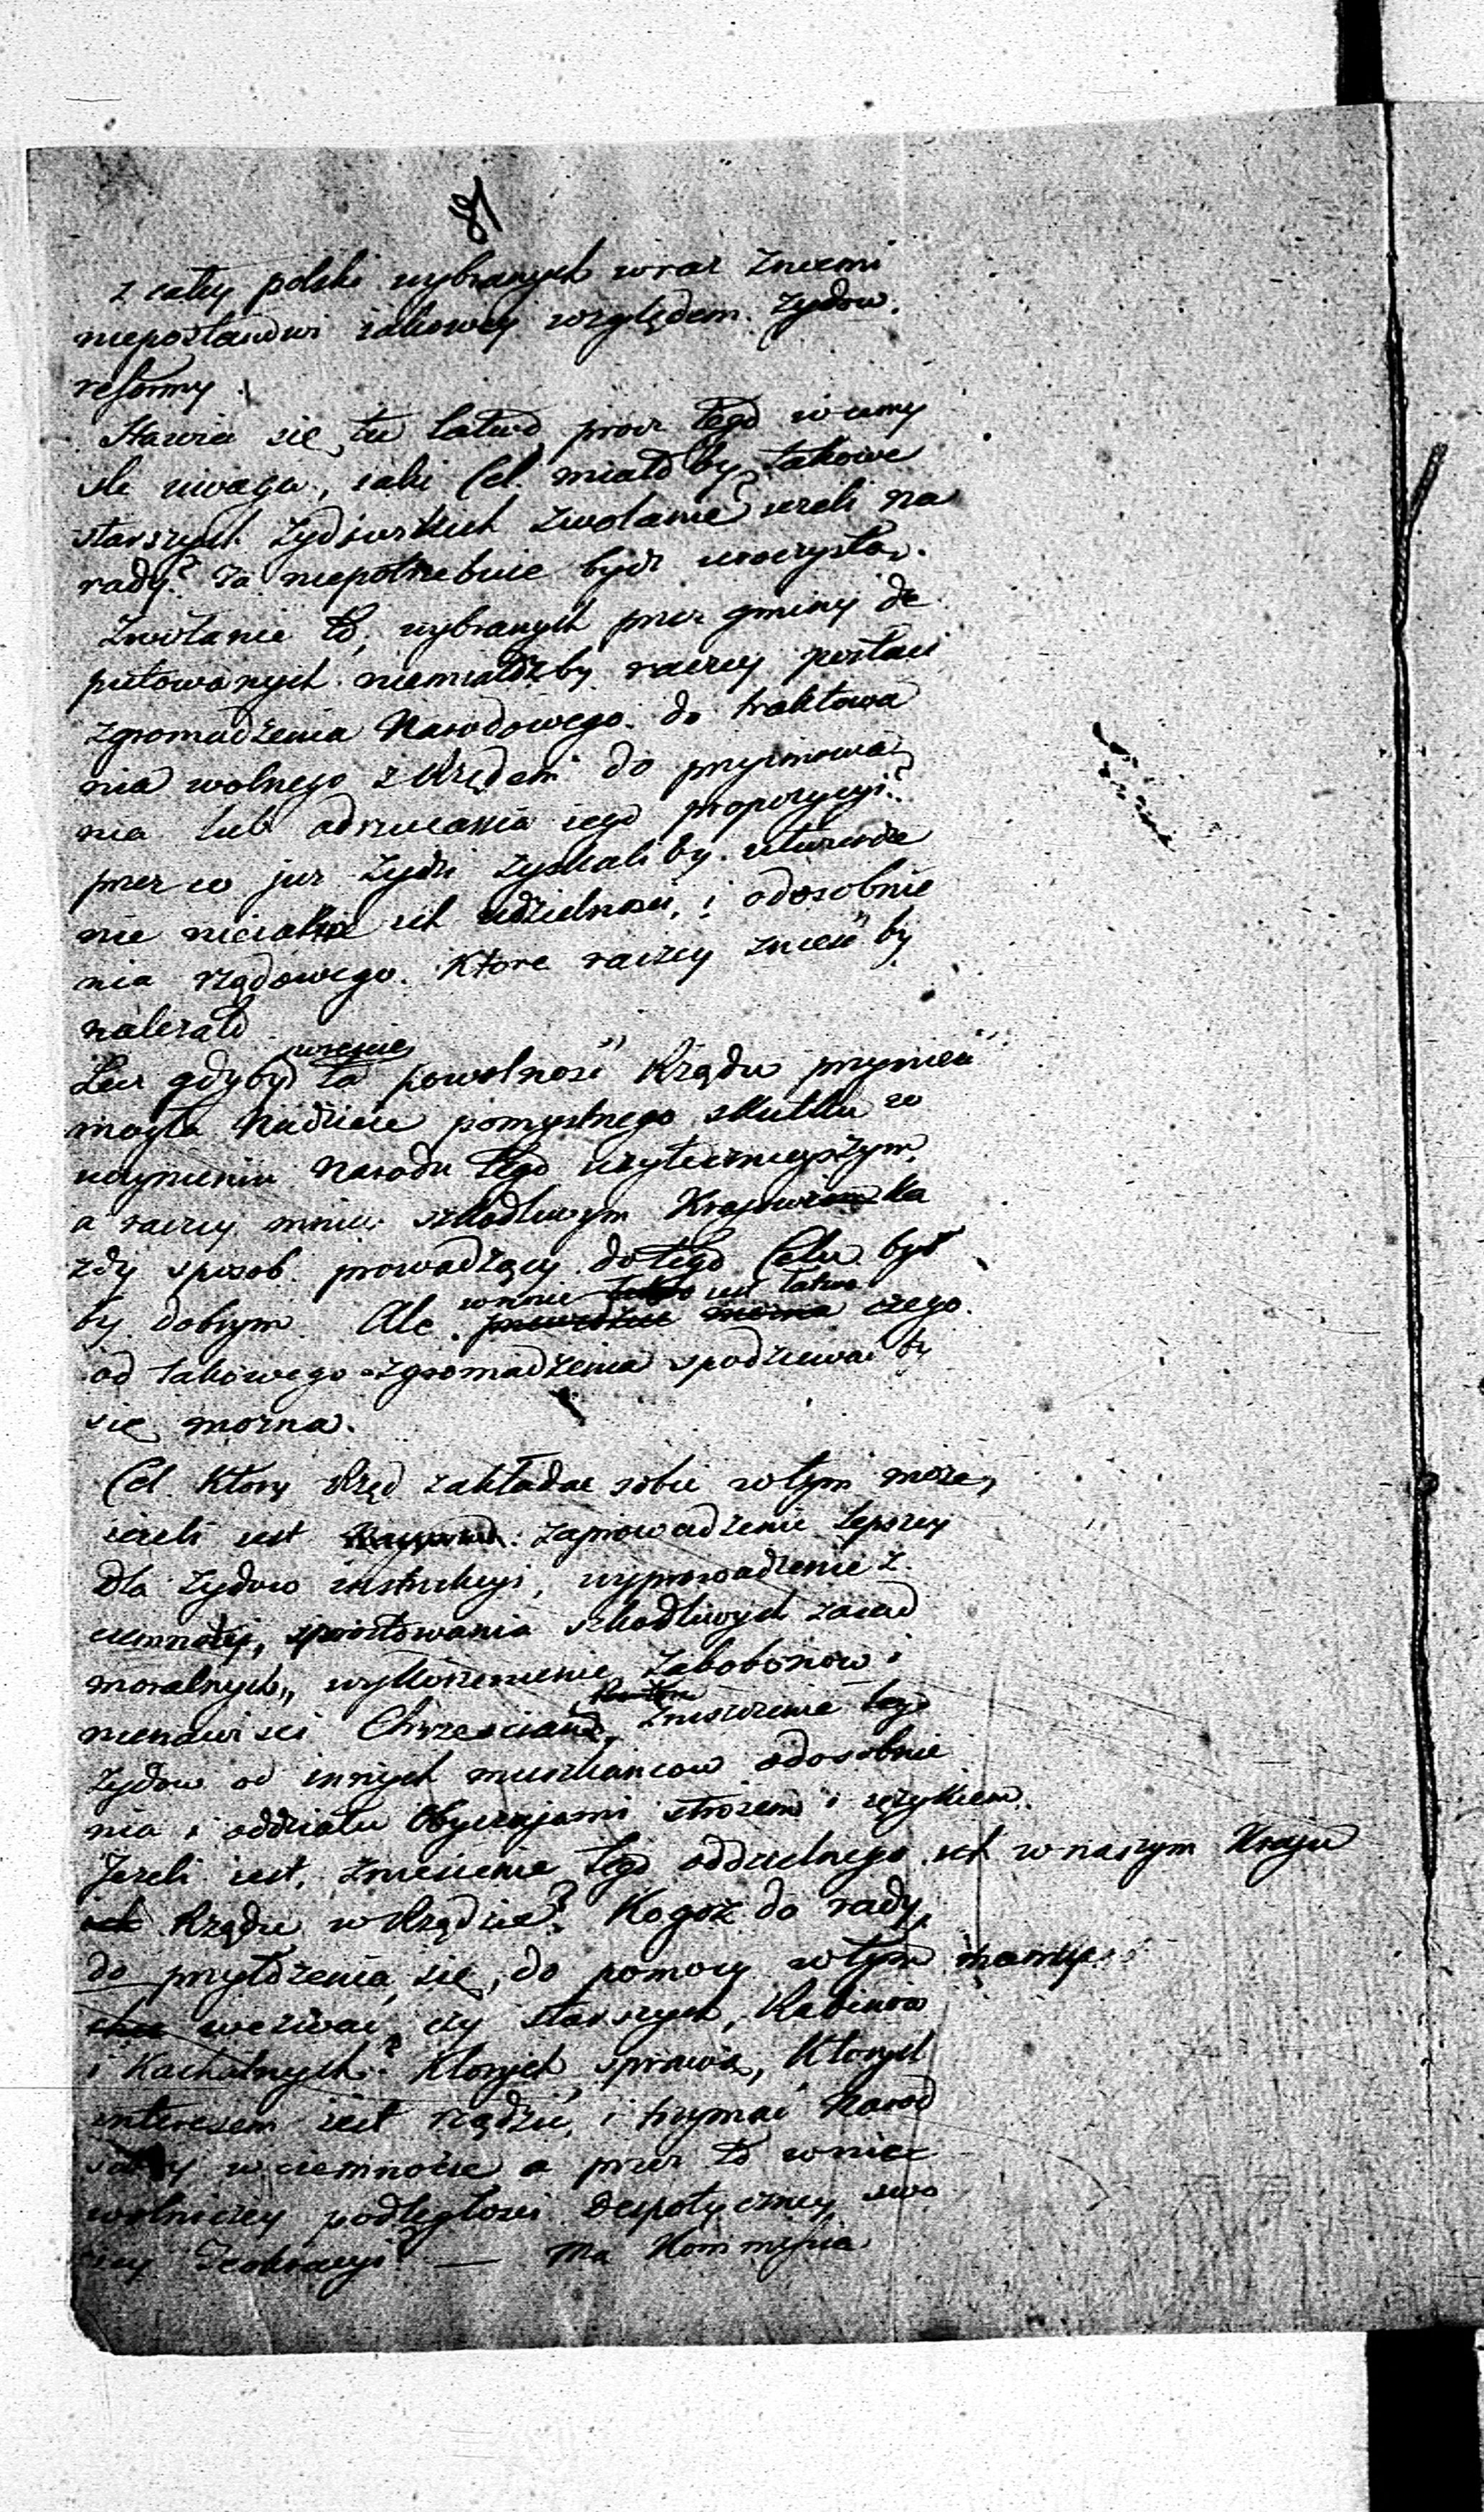 z całey polski wybranych wraz z niemi
niepostanowi iakowey względem Zydow.
reformy.
Stawia się tu łatwo procz tego w umy
sle uwaga, iaki Cel miało by takowe
starszych Zydowskich zwołanie? iezeli na
rady? ta niepotrzebuie bydz uroczystą.
Zwołanie to, wybranych przez gminy de
putowanych niemiałoż by raczey postaci
zgromadzenia Narodowego do traktowa
nia wolnego z Rządem do przyimowa
nia lub odrzucania iego propozycyi?
przez co juz Zydzi zyskali by utwierdze
nie nieiakie ich udzielnosci, i odosobnie
nia rządowego. Ktore raczey znieść by
nalezało
wrescie
Lecz gdyby ta powolność Rządu przynieść
mogła Nadzieie pomyslnego skutku w
uczynieniu Narodu tego uzytecznieyszym,
a raczey mniey szkodliwym Kraiowi ka
zdy sposob prowadzący do tego Celu był
by dobrym. Ale czego
wnieść iest łatwo
od takowego zgromadzenia spodziewać by
się mozna.
Cel Ktory Rząd zakładać sobie w tym moze,
iezeli iest zaprowadzenie lepszey
Dla Zydow instrukcyi, wyprowadzenie z
ciemnoty, sprostowania szkodliwych zasad
moralnych, wykorzenienie zabobonow i
nienawisci Chrzescian, zniszczenie tego
Zydow od innych mieszkancow odosobnie
nia i oddziału Obyczajami stroiem i ięzykiem.
Jezeli iest, zniesienie tego oddzielnego ich w naszym Kraju
Rządu w Rządzie? Kogoż do rady,
do przyłożenia się, do pomocy w tym mamyż
wezwać, czy starszych, Rabinow
i Kachalnych? Ktorych sprawą, Ktorych
interesem iest rządzić, i trzymać Narod
w ciemnocie a przez to w nie
wolniczey podległosci Despotyczney swo
iey Teokracyi? — Ma Kommissia